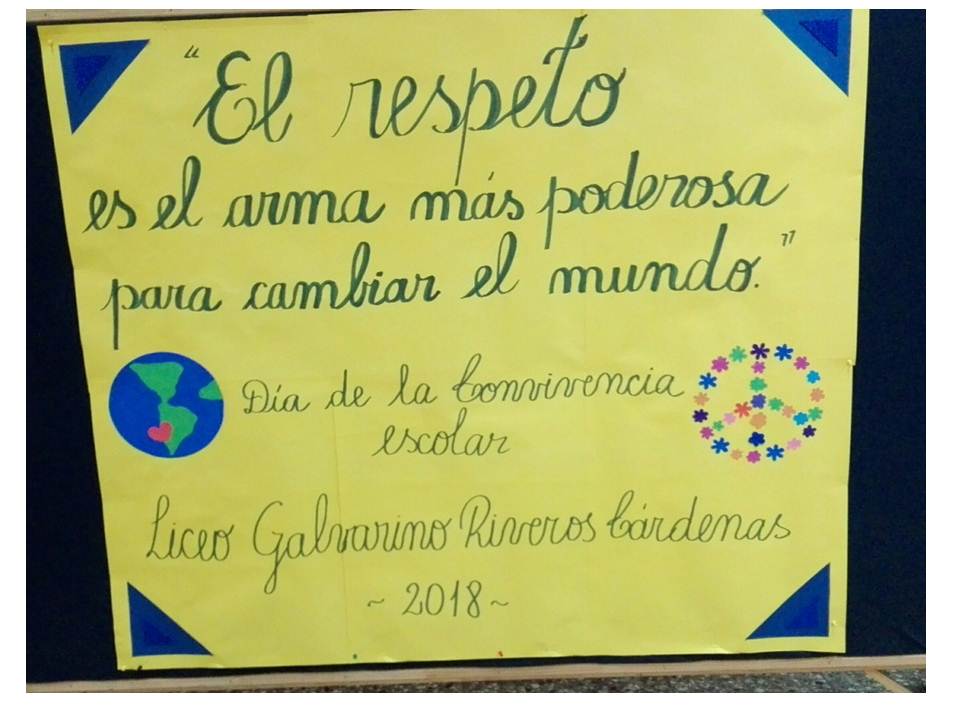 "El respeto
es el arma más poderosa
para cambiar el mundo."
Día de la Convivencia
escolar
Liceo Galvarino Riveros Cárdenas
~ 2018 ~